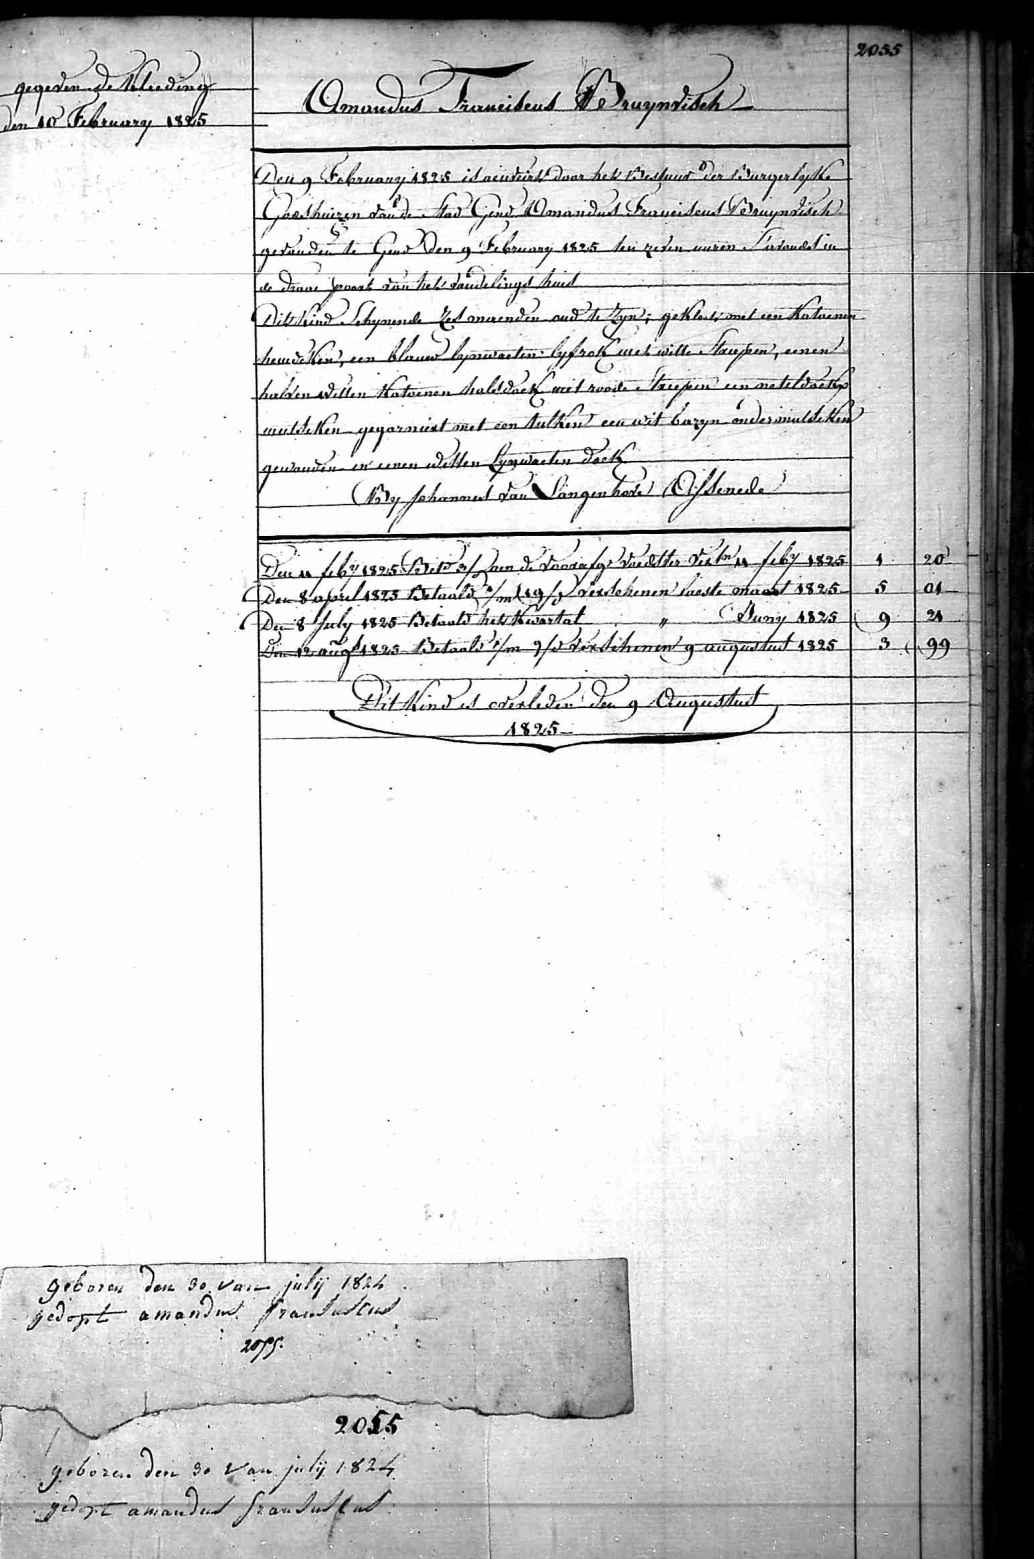 2055
gegeven de Kleeding
den 10 February 1825
Amandus Franciscus Bruynvisch
Den 9 February 1825 is aenveird door het Bestuur der Burgerlyke
Godshuizen van de Stad Gend Amandus Franciscus Bruynvisch
gevonden te Gend Den 9 February 1825 ten zeven uuren s'avonds in
de draai poort van het vondelings huis
Dit Kind Schynende Zes maenden oud te Zyn; gekleet met een Katoenen
hemdeken, een blauw lynwaeten lyfrok met witte Streepen, eenen
halven witten Katoenen halsdoek met roode Streepen een neteldoekx
mutsken gegarniert met een tulken een wit bazyn ondermutsken
gewonden in eenen witten Lynwaeten doek
By Johannes van Langenhove Assenede
Den 11 feby 1825 aen de voedster 11 feby 1825 1 20
Den 8 april 1825 Betaald verschenen laeste maart 1825 5 01
Den 8 July 1825 Betaald het Kwartal " Juny 1825 9 21
Den 12 augt 1825 Betaald verschenen 9 augustus 1825 3 99
Dit Kind is overleden den 9 Augustus
1825
geboren den 30 van julij 1824
gedopt amandus fransuscus
2055
2055
geboren den 30 van julij 1824
gedopt amandus fransuscus